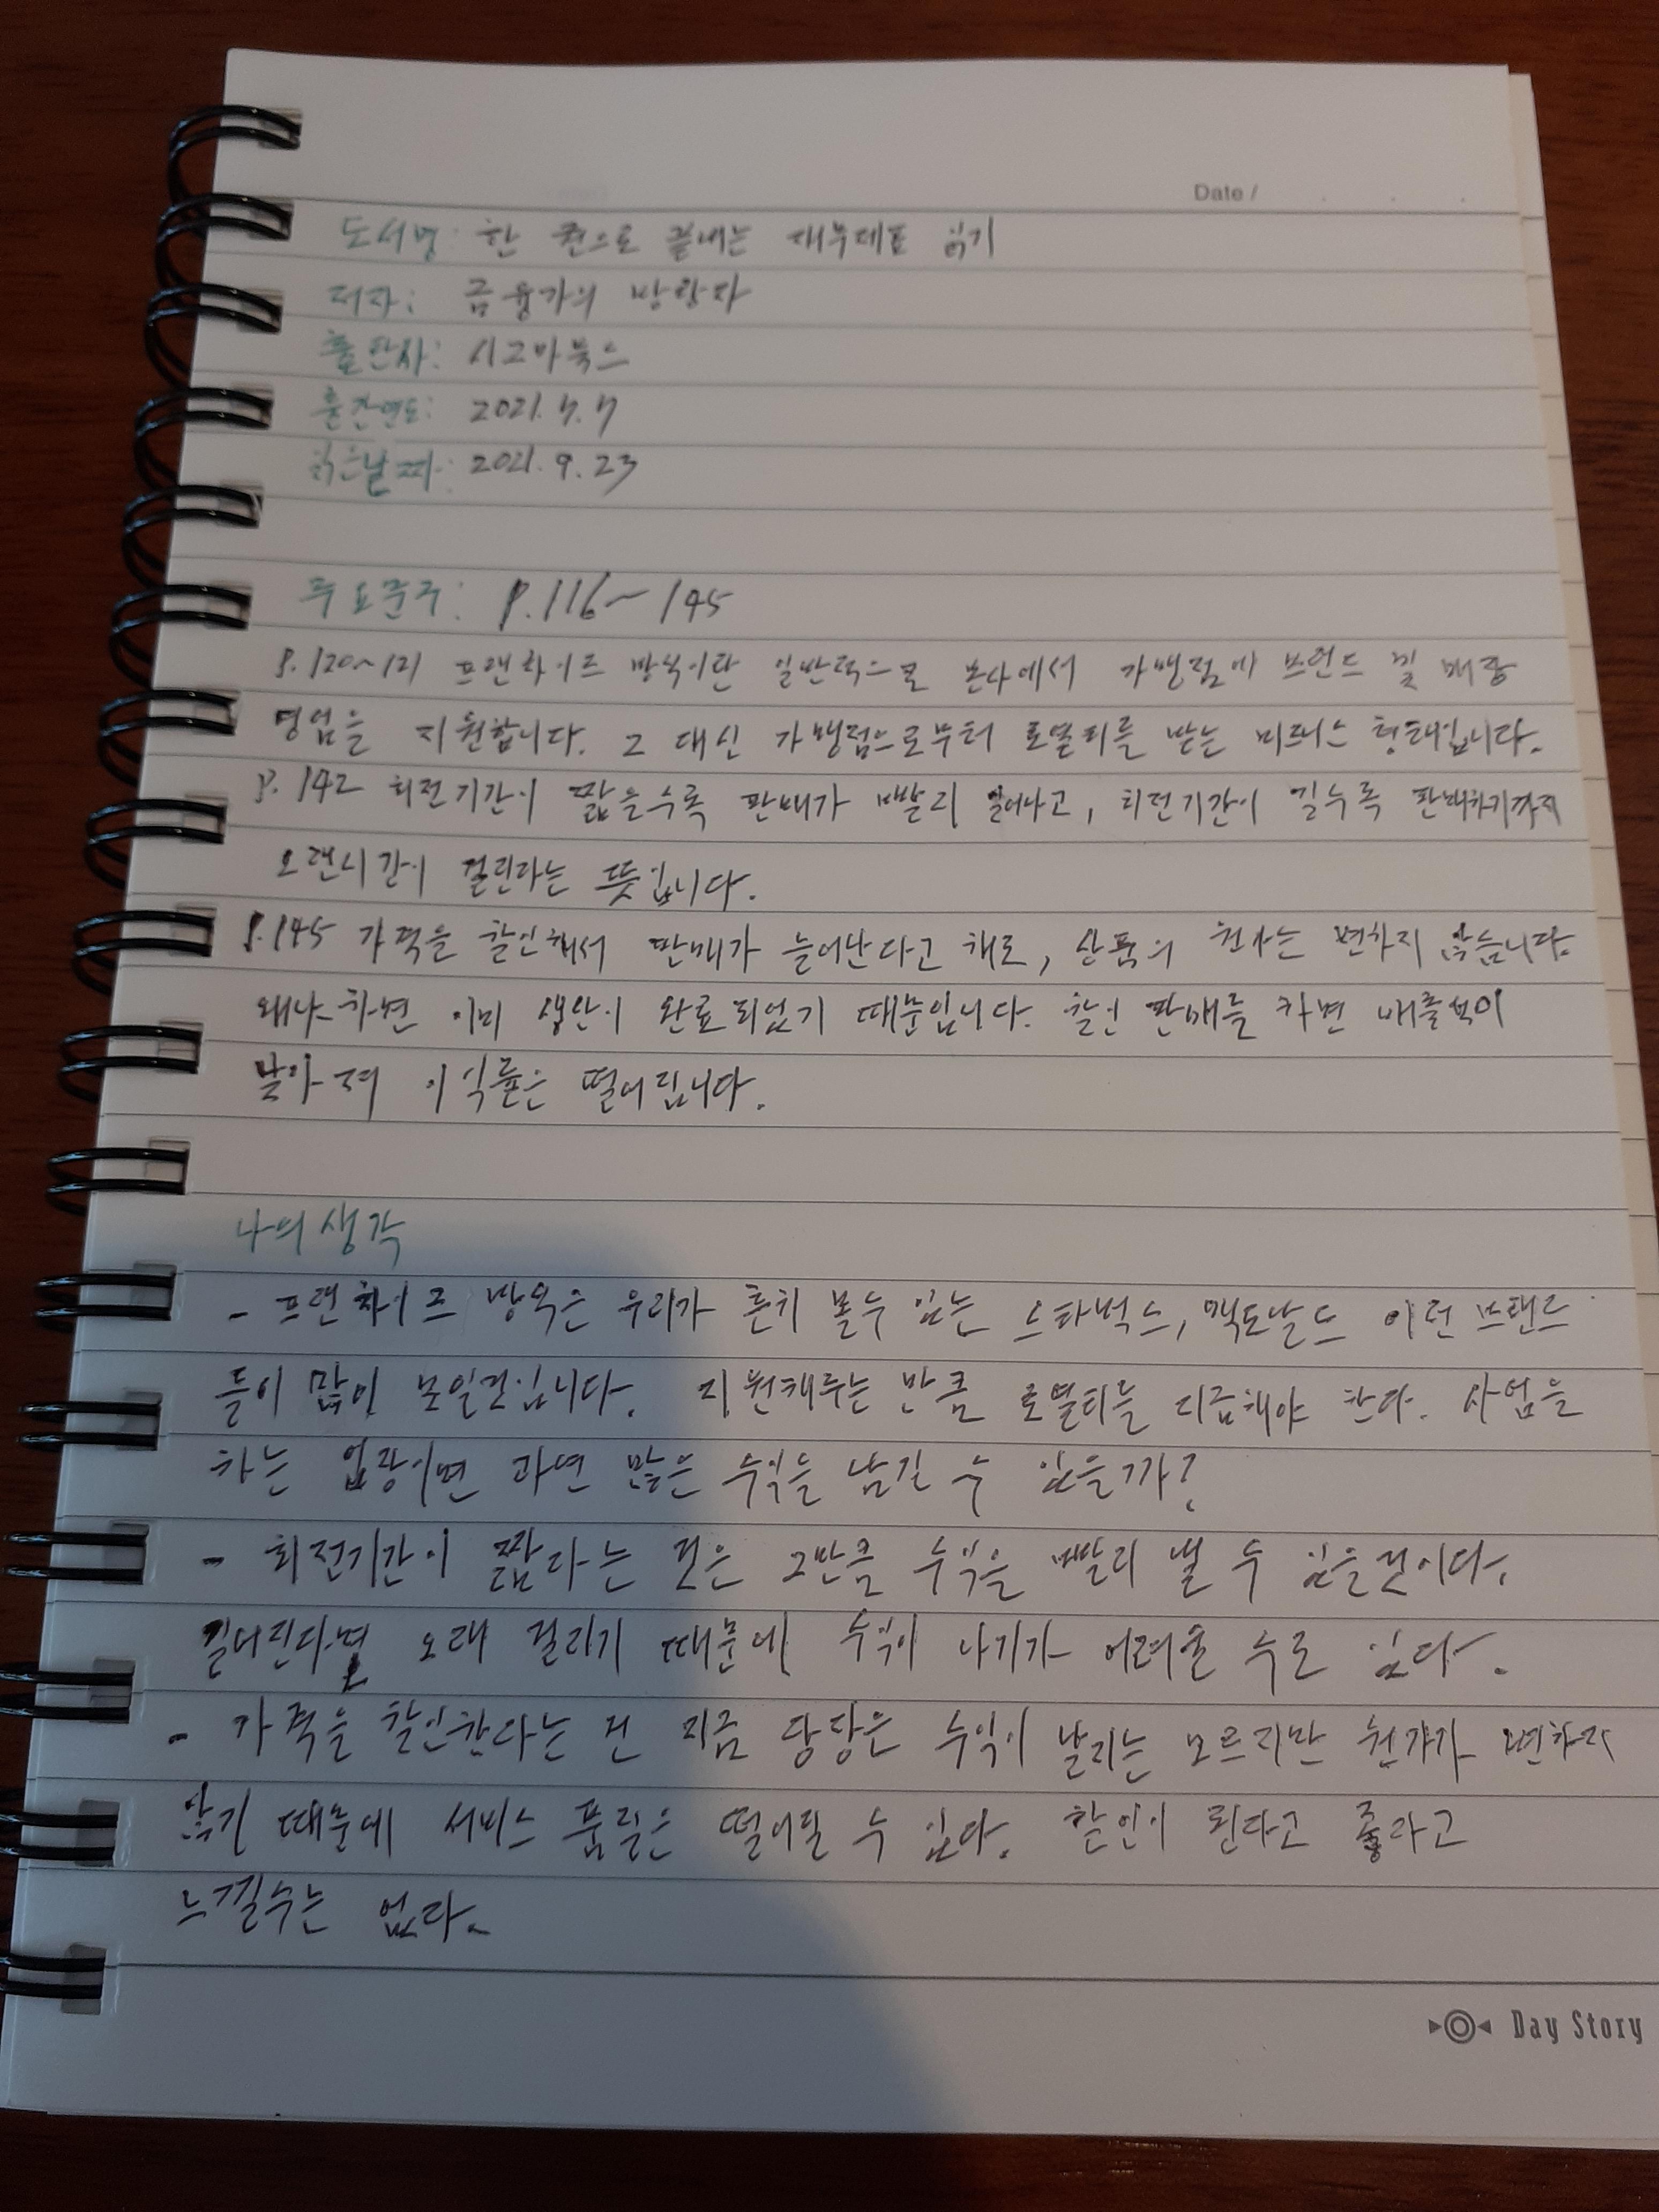 Date /
도서명: 한 권으로 끝내는 재무제표 읽기
저자: 금융가의 방랑자
출판사: 시그마북스
출간연도: 2021. 7. 7
읽은날짜: 2021. 9. 23
주요문구: P.116~145
P.120~121 프랜차이즈 방식이란 일반적으로 본사에서 가맹점에 브랜드 및 매장
영업을 지원합니다. 그 대신 가맹점으로부터 로열티를 받는 비즈니스 형태입니다.
P.142 회전기간이 짧을수록 판매가 빨리 일어나고, 회전기간이 길수록 판매하기까지
오랜시간이 걸린다는 뜻입니다.
P.145 가격을 할인해서 판매가 늘어난다고 해도, 상품의 원가는 변하지 않습니다.
왜냐하면 이미 생산이 완료되었기 때문입니다. 할인 판매를 하면 매출액이
낮아져 이익률은 떨어집니다.
나의 생각
- 프랜차이즈 방식은 우리가 흔히 볼수 있는 스타벅스, 맥도날드 이런 브랜드
들이 많이 보일것입니다. 지원해주는 만큼 로열티를 지급해야 한다. 사업을
하는 입장이면 과연 많은 수익을 남길 수 있을까?
- 회전기간이 짧다는 것은 그만큼 수익을 빨리 낼 수 있을것이다.
길어진다면 오래 걸리기 때문에 수익이 나기가 어려울 수도 있다.
- 가격을 할인한다는 건 지금 당장은 수익이 날지는 모르지만 원가가 변하지
않기 때문에 서비스 품질은 떨어질 수 있다. 할인이 된다고 좋다고
느낄수는 없다.
Day Story